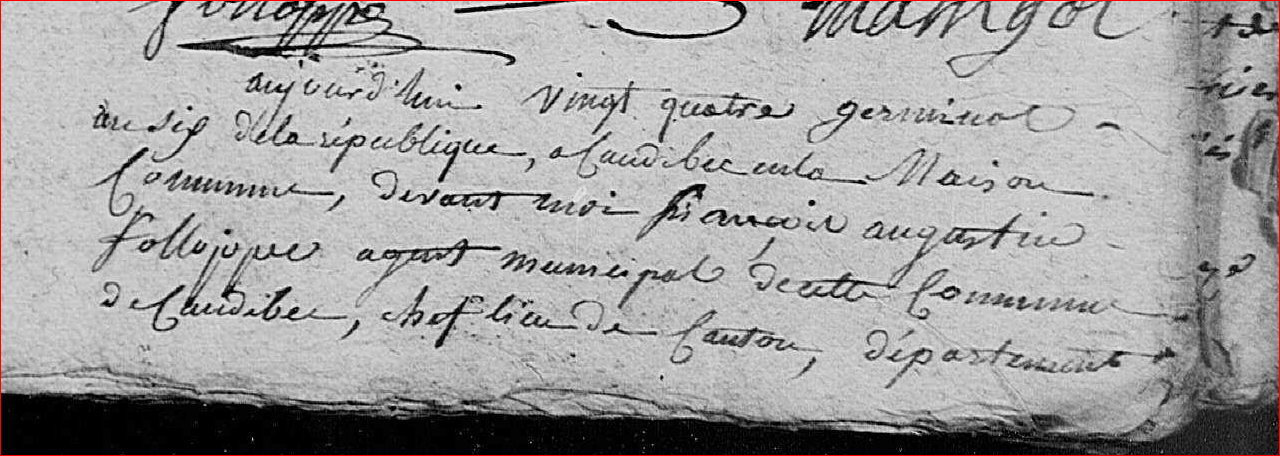 aujourd'hui vingt quatre germinal -
an six de la république, a Caudebec en la Maison
Commune, devant moi françois augustin -
follojope agent municipal de cette Commune
de Caudebec, chef lieu de Canton, département